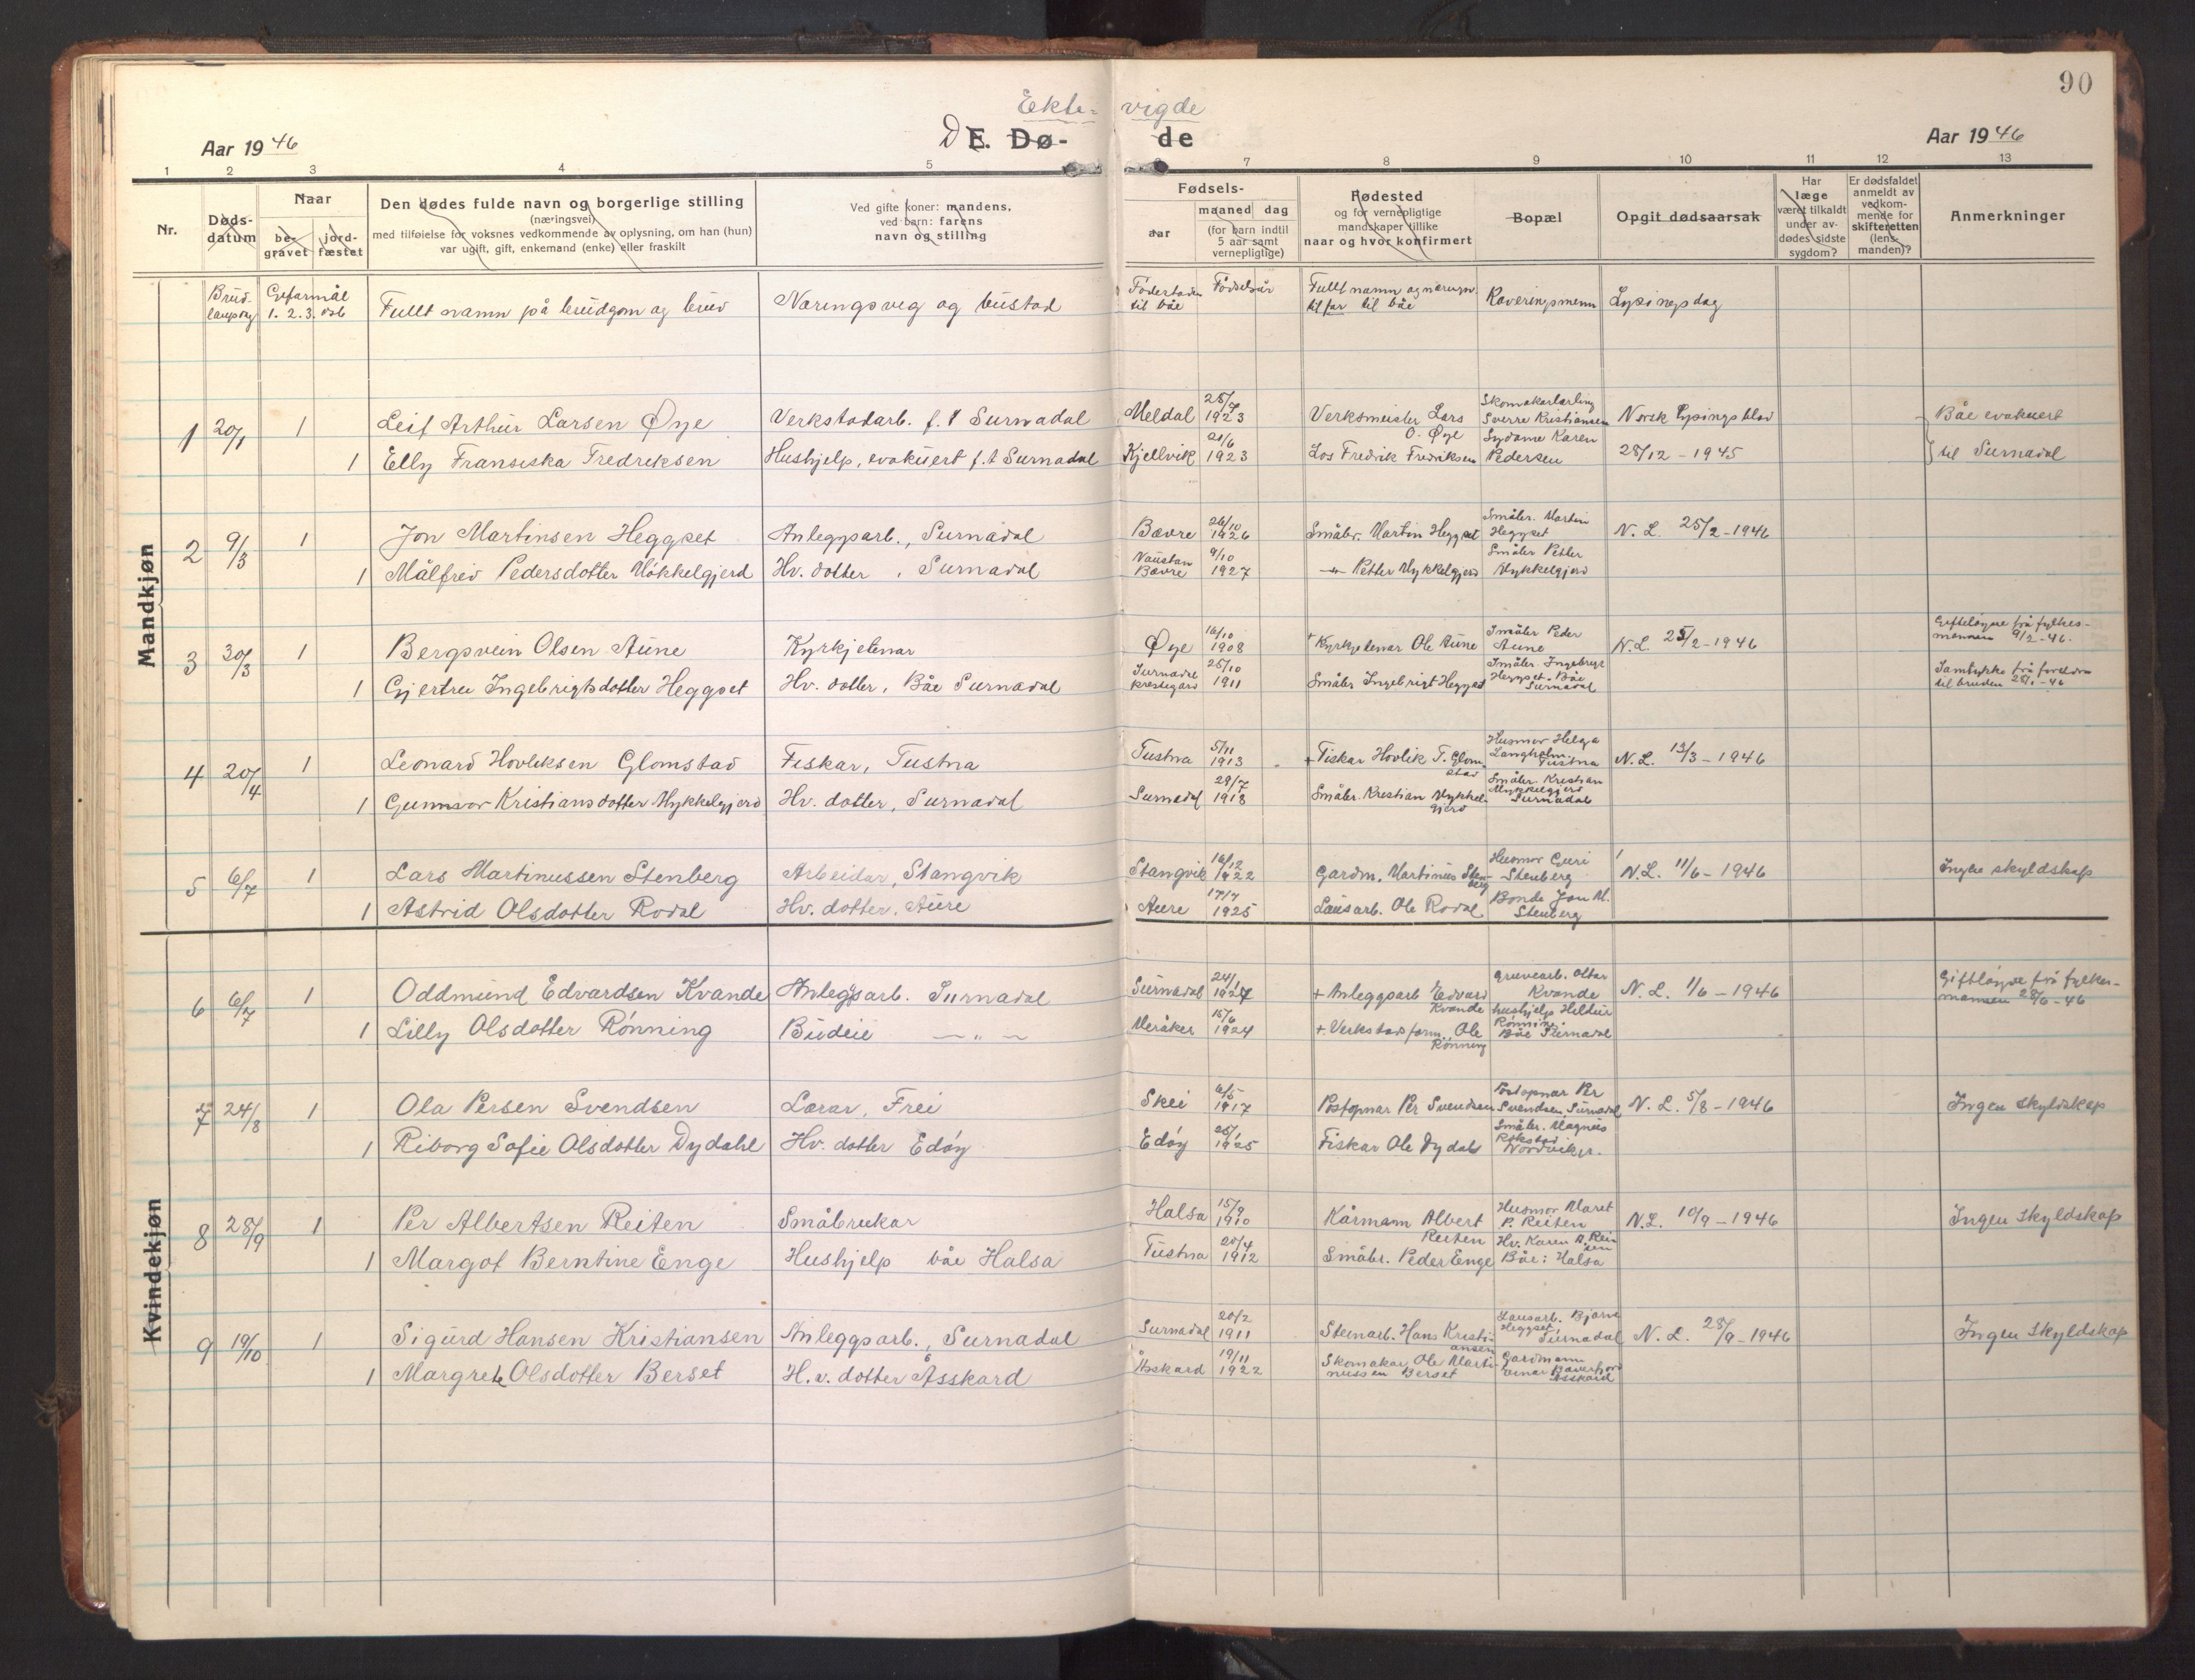 90
Ekte- vigde
Aar 1946 D E. Dø- de Aar 1946
1 2 3 4 5 7 8 9 10 11 12 13
Nr.
Døds-
datum
Naar
be-
gravet
jord-
fæstet
Den dødes fulde navn og borgerlige stilling
(næringsvei)
med tilføielse for voksnes vedkommende av oplysning, om han (hun)
var ugift, gift, enkemand (enke) eller fraskilt
Ved gifte koner: mandens,
ved barn: farens
navn og stilling
Fødsels-
aar
maaned dag
(for barn indtil
5 aar samt
vernepligtige)
Fødested
og for vernepligtige
mandskaper tillike
naar og hvor konfirmert
Bopæl
Opgit dødsaarsak
Har
læge
været tilkaldt
under av-
dødes sidste
sygdom?
Er dødsfaldet
anmeldt av
vedkom-
mende for
skifteretten
(lens-
manden)?
Anmerkninger
Brud-
laupsdag
Giftarmål
1. 2. 3.
Fullt namn på brudgom og brud
Næringsveg og bustad
Fødestaden
til båe
Fødselsår
Fullt namn og næringsv.
til far til båe
Kaveringsmenn
Lysingsdag
Mandkjøn
1 20/1 1 Leif Arthur Larsen Øye Verkstadarb. f.t Surnadal Meldal 25/7 1923 Verksmeister Lars O. Øye
Skomakarlærling
Sverre Kristiansen
Norsk Lysingsblad
Båe evakuert
1 Elly Fransiska Fredriksen Hushjelp, evakuert f.t Surnadal Kjellvik 21/6 1923 Los Fredrik Fredriksen
Sydame Karen
Pedersen
28/12 - 1945
til Surnadal
2 9/3 1 Jon Martinsen Heggset Anleggsarb., Surnadal Bævre 26/10 1926 Småbr. Martin Heggset
Småbr. Martin
Heggset
N. L. 25/2 - 1946
1 Målfrid Pedersdotter Møkkelgjerd Hv. dotter, Surnadal Naustan
Bævre 9/10 1927 Petter Mykkelgjerd
Småbr Petter
Mykkelgjerd
3 30/3 1 Bergsvein Olsen Aune Kyrkjetenar Øye 16/10 1908 + Kyrkjetenar Ole Aune
Småbr Peder
Aune
N. L. 25/2 - 1946
Gifteløyve frå fylkes-
mannen 9/2 - 46.
1 Gjertru Ingebrigtsdotter Heggset Hv. dotter, Båe Surnadal Surnadal
prestegard 25/10 1911 Småbr Ingebrigt Heggset
Småbr. Ingebrigt
Heggset. Båe
Surnadal
Samtykke frå foreldra
til bruden 28/1 - 46
4 20/4 1 Leonard Hovliksen Glomstad Fiskar, Tustna Tustna 5/11 1913 + Fiskar Hovlik T. Glom-
stad
Husmor Helga
Langholm
Tustna
N. L. 13/3 - 1946
1 Gunnvor Kristiansdotter Mykkelgjerd Hv. dotter, Surnadal Surnadal 29/7 1918 Småbr. Kristian Mykkel-
gjerd
Småbr. Kristian
Mykkelgjerd
Surnadal
5 6/7 1 Lars Martinussen Stenberg Arbeidar, Stangvik Stangvik 16/12 1922 Gardm. Martinus Sten-
berg
Husmor Guri
Stenberg
N. L. 11/6 - 1946
Ingen skyldskap
1 Astrid Olsdotter Rodal Hv. dotter, Aure Aure 17/7 1925 Lausarb. Ole Rodal
Bonde Jon M.
Stenberg
Kvindekjøn
6 6/7 1 Oddmund Edvardsen Kvande Anleggsarb. Surnadal Surnadal 24/1 1927 + Anleggsarb Edvard
Kvande
Gruvearb. Oltar
Kvande
N. L. 1/6 - 1946
Giftløyve frå fylkes-
mannen 28/6 - 46
1 Lilly Olsdotter Rønning Budeie — " — Meråker 15/6 1924 + Verkstadform. Ole
Rønning
hushjelp Hildur
Rønning
Båe Surnadal
7 24/8 1 Ola Persen Svendsen Lærar, Frei Skei 6/5 1917 Postopnar Per Svendsen
Postopnar Per
Svendsen, Surnadal
N. L. 5/8 - 1946
Ingen skyldskap
1 Riborg Sofie Olsdotter Dydahl Hv. dotter Edøy Edøy 25/1 1925 Fiskar Ole Dydahl
Småbr. Magnus
Rokstad
Nordvik
8 28/9 1 Per Albertsen Reiten Småbrukar Halsa 15/9 1910 Kårmann Albert
Reiten
Husmor Maret
P. Reiten
N. L. 10/9 - 1946
Ingen skyldskap
1 Margot Berntine Enge Hushjelp båe Halsa Tustna 20/4 1912 Småbr. Peder Enge
Hv. Karen A. Rei-
ten
Båe: Halsa
9 19/10 1 Sigurd Hansen Kristiansen Anleggsarb., Surnadal Surnadal 20/2 1911 Steinarb. Hans Kristi-
ansen
Lausarb. Bjarne
Heggset,
Surnadal
N. L. 28/9 - 1946
Ingen skyldskap
1 Margrete Olsdotter Berset H.v. dotter Åsskard Åsskard 19/11 1922 Skomakar Ole Marti-
nussen Berset
Gardmann
Einar Bæverfjord
Åsskard